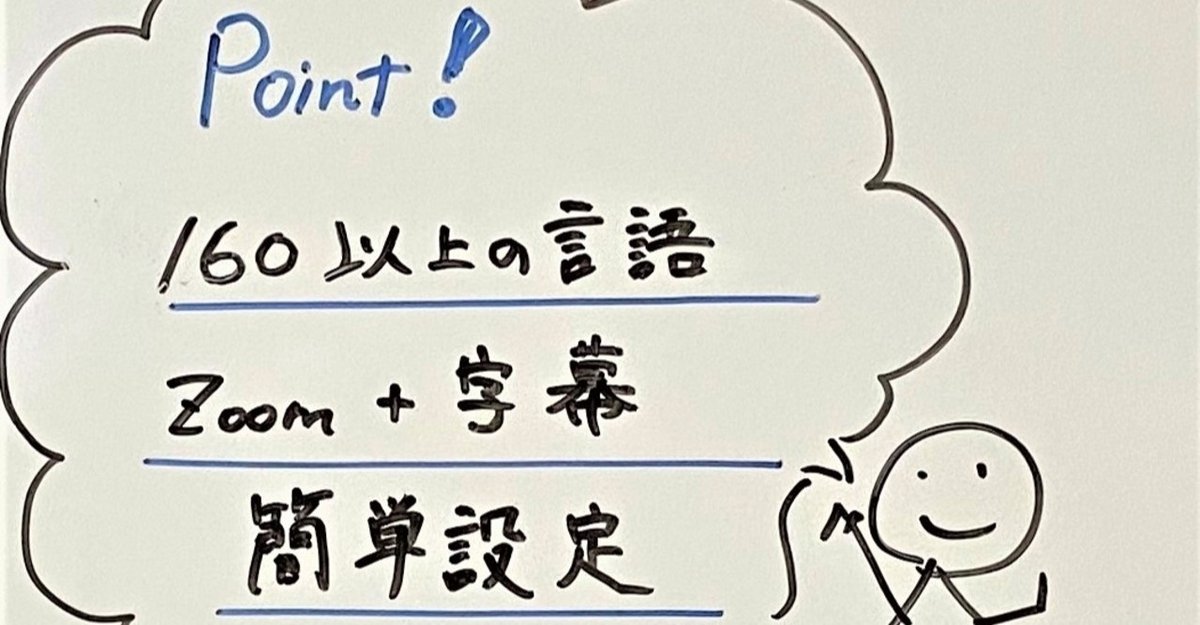 Point!
160以上の言語
Zoom + 字幕
簡単設定